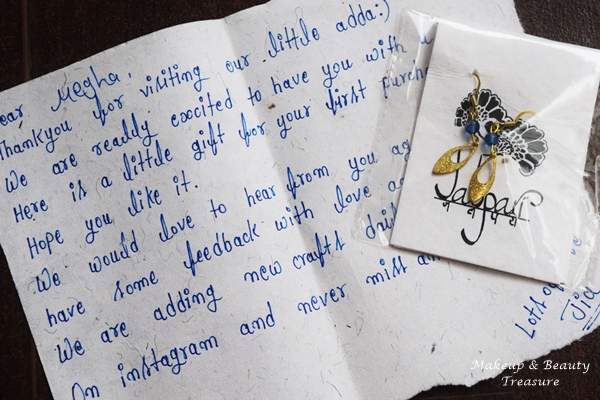 ear Megha,
Thankyou for visiting our little adda:)
We are really excited to have you with u
Here is a little gift for your first purcha
Hope you like it.
We would love to hear from you aga
have some feedback with love a
We are adding new crafts dail
On instagram and never miss an
Lots o
Jia
Makeup & Beauty
Treasure